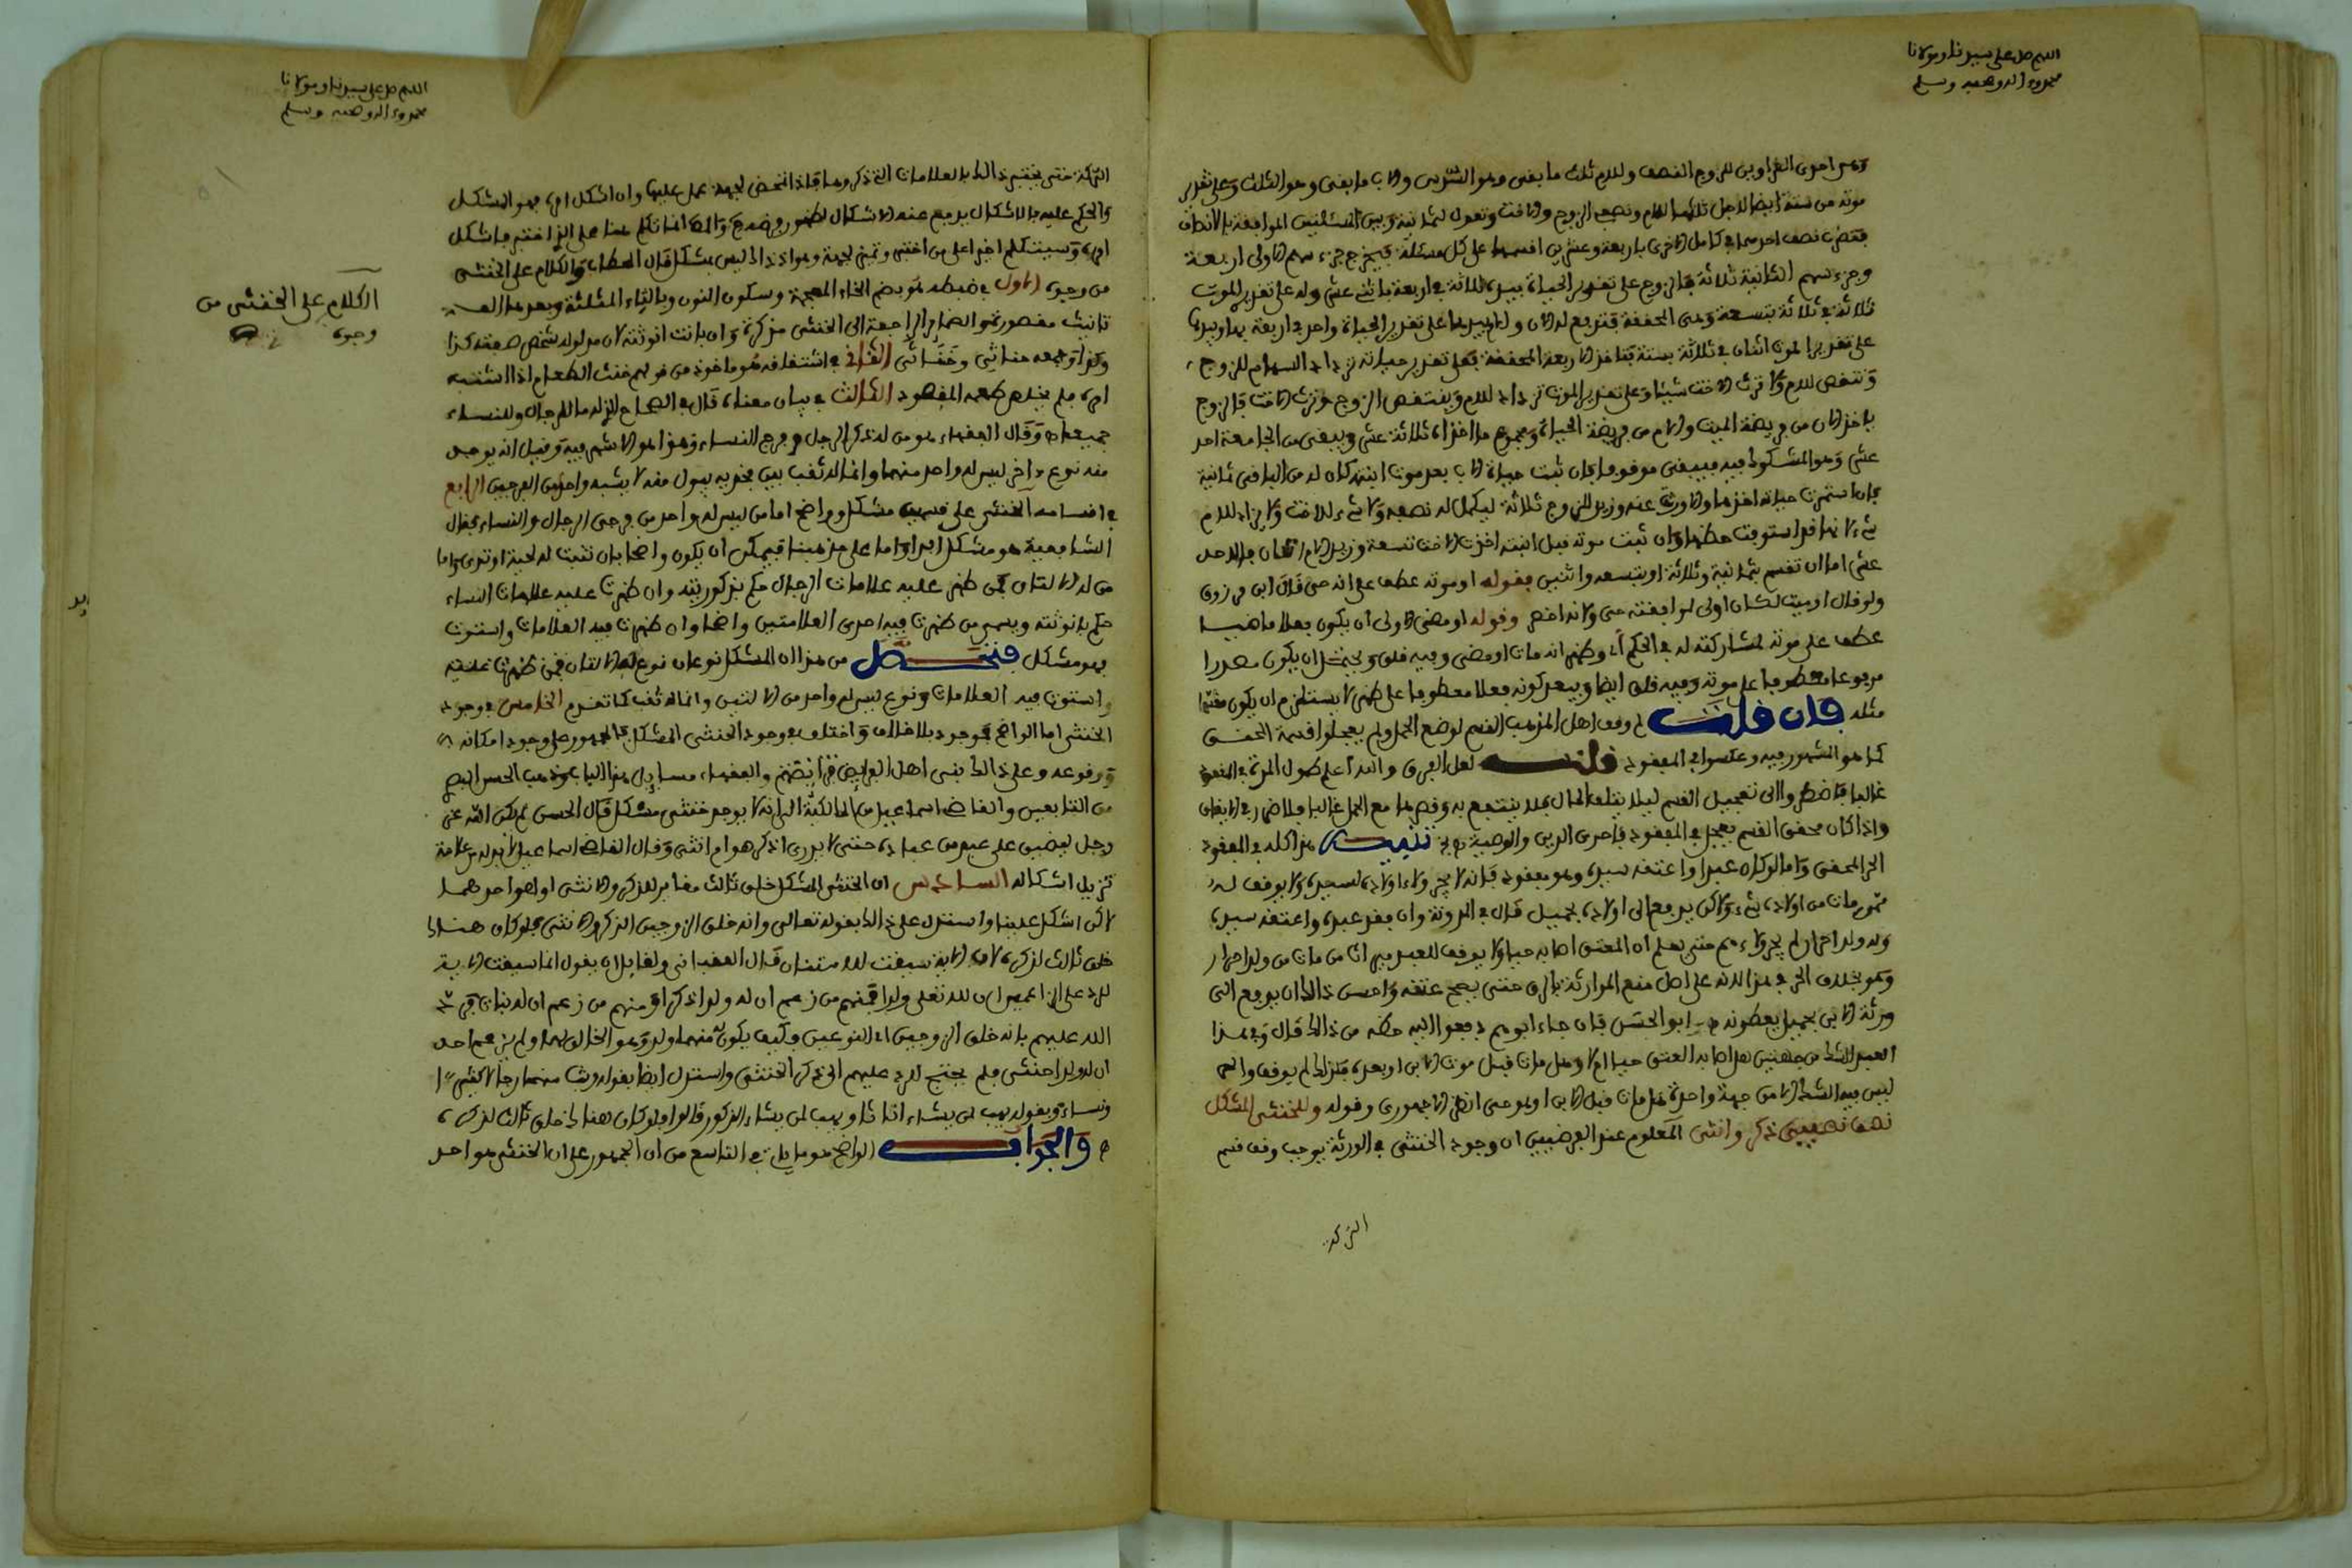 اللهم صل على سيدنا ومولانا
محمد وءاله وصحبه وسلم
وهى احدى الغراوين للزوج النصف وللام ثلث ما بقى وهو السدس والاب ما بقى وهو الثلث وعلى تقدير
موته من ستة ايضا لاجل ثلث الام ونصف الزوج والاخت وتعول لثمانية وبين المسئلتين الموافقة بالانصاف
فتضرب نصف احدهما فى كامل الاخرى باربعة وعشرين اقسمها على كل مسئلة فيخرج جزء سهم الاولى اربعة
وجزء سهم الثانية ثلاثة فالزوج على تقدير الحياة بيده ثلاثة فى اربعة باثنى عشر وله على تقدير الموت
ثلاثة فى ثلاثة بتسعة وهى المحققة فتدفع له الان والام بيدها على تقدير الحياة واحد فى اربعة بها وبيدها
على تقدير الموت اثنان فى ثلاثة بستة فتاخذ الاربعة المحققة فعلى تقدير حياته تزداد السهام للزوج
وتنقص للام ولا ترث الاخت شيئا وعلى تقدير الموت تزداد للام وينتقص الزوج وترث الاخت فالزوج
ياخذ الان من فريضة الميت والام من فريضة الحياة ومجموع ما اخذاه ثلاثة عشر ويبقى من الجامعة احد
عشر وهو المشكوك فيه فيبقى موقوفا فان ثبت حياة الاب بعد موت ابنته كان له من الباقى ثمانية
فان استمرت حياته اخذها والا ورثت عنه وزيد للزوج ثلاثة ليكمل له نصفه ولا شىء للاخت ولا يزاد للام
شىء لانها قد استوفت حظها وان ثبت موته قبل ابنته اخذت الاخت تسعة وزيد للام اثنان فالاحد
عشر اما ان تقسم بثمانية وثلاثة او بتسعة واثنين فقوله او موته عطف على انه حى قال ابن مرزوق
ولو قال او ميت لكان اولى لموافقته حى ولانه اخصر وقوله او مضى الاولى ان يكون فعلا ماضيا
عطف على موته لمشاركته له فى الحكم اى وظهر انه مات او مضى وفيه قلق ويحتمل ان يكون مصدرا
مرفوعا معطوفا على موته وفيه قلق ايضا ويبعد كونه فعلا معطوفا على ظهر لا يستلزم ان يكون مقدرا
مثله فان قلت لم وقف اهل المذهب القسم لوضع الحمل ولم يعجلوا قسمة المحقق
كما هو المشهور فيه وعكسوا فى المفقود قلت لعل الفرق والله اعلم طول المدة فى المفقود
غالبا فاضطروا الى تعجيل القسم ليلا يتلف المال فلا ينتفع به وقصرها مع الحمل غالبا فلا ضرر فى الايقاف
واذا كان محقق القسم يعجل فى المفقود فاحرى الدين والوصية تنبيه هذا كله فى المفقود
الحر المحقق واما لو كان عبدا واعتقه سيده وهو مفقود فانه لا يجر ولاء اولاده لسيده ولا يوقف له
ممن مات من اولاده شىء ولاكن يدفع الى اولاده بحميل قال فى المدونة وان فقد عبد واعتقه سيده
وله ولد احرار لم يجر ولاءهم حتى يعلم ان العتق اصابه حيا ولا يوقف للعبد ميراث من مات من ولده احرار
وهو بخلاف الحر فى هذا لانه على اصل منع الموارثة بالرق حتى يصح عتقه واحسن ذالك ان يدفع الى
ورثة الابن بحميل يعطونه ابو الحسن فان جاء ابوهم دفعوا اليه حظه من ذالك قال وفى هذا
العبد الشك من جهتين هل اصابه العتق حيا ام لا وهل مات قبل موت الابن او بعده فلذالك لم يوقف والحر
ليس فيه الشك الا من جهة واحدة هل مات قبل الابن او هو حى انظر الاجهورى وقوله وللخنثى المشكل
نصف نصيبى ذكر وانثى المعلوم عند الفرضيين ان وجود الخنثى فى الورثة يوجب وقف قسم
التركة
اللهم صل على سيدنا ومولانا
محمد وءاله وصحبه وسلم
التركة حتى يختبر ذالك بالعلامات التى ذكروها فاذا اتضح لجهة عمل عليها وان اشكل امره فهو المشكل
والحكم عليه بالاشكال يرفع عنه الاشكال لظهور والمص انما تكلم هنا على الذى اختبر فاشكل
امره وسيتكلم اخيرا على من اختبر وتميز لجهة وهو اذ ذاك ليس بمشكل قال الحطاب والكلام على الخنثى
من وجوه الاول فى ضبطه هو بضم الخاء المعجمة وسكون النون وبالثاء المثلثة وبعدها الف
تانيث مقصورة والضماير الراجعة الى الخنثى مذكرة وان بانت انوثته لان مدلوله شخص صفته كذا
وكذا وجمعه خناثى وخناث الثانى فى اشتقاقه هو ماخوذ من قولهم خنث الطعام اذا اشتبه
امره فلم يخلص طعمه المقصود الثالث فى بيان معناه قال فى الصحاح الذى له ما للرجال وللنساء
جميعا وقال الفقهاء هو من له ذكر الرجل وفرج النساء وهذا هو الاشهر فيه وقيل انه يوجد
منه نوع ءاخر ليس له واحد منهما وانما له ثقب بين فخذيه يبول منه لا يشبه واحدا من الفرجين الرابع
فى اقسامه الخنثى على قسمين مشكل وواضح اما من ليس له واحد من فرجى الرجال والنساء فقال
الشافعية هو مشكل ابدا واما على مذهبنا فيمكن ان يكون واضحا بان تنبت له لحية او ثدى واما
من له الالتان فمن ظهر عليه علامات الرجال حكم بذكوريته وان ظهرت عليه علامات النساء
حكم بانوثته ويسمى من ظهرت فيه احدى العلامتين واضحا وان ظهرت فيه العلامات واستوت
فهو مشكل فتحصل من هذا ان المشكل نوعان نوع له الالتان فمن ظهرت عليه
واستوت فيه العلامات ونوع ليس له واحد من الالتين وانما له ثقب كما تقدم الخامس فى وجود
الخنثى اما الواضح فموجود بلا خلاف واختلف فى وجود الخنثى المشكل فالجمهور على وجود امكانه
ووقوعه وعلى ذالك بنى اهل الفرايض فرايضهم والفقهاء مسايل هذا الباب وذهب الحسن البصرى
من التابعين والقاضى اسماعيل من المالكية الى انه لا يوجد خنثى مشكل قال الحسن لم يكن الله عز
وجل ليضيق على عبد من عباده حتى لا يدرى اذكر هو ام انثى وقال القاضى اسماعيل لا بد له من علامة
تزيل اشكاله السادس ان الخنثى المشكل خلق ثالث مغاير للذكر والانثى او هو احدهما
لاكن اشكل علينا واستدل على ذالك بقوله تعالى وانه خلق الزوجين الذكر والانثى فلو كان هناك
خلق ثالث لذكره لان الاية سيقت للامتنان قال العقبانى ولقايل ان يقول انما سيقت الاية
للرد على الزاعمين ان لله تعلى ولدا فمنهم من زعم ان له ولدا ذكرا ومنهم من زعم ان له بنات فرد
الله عليهم بانه خلق الزوجين اى النوعين وكيف يكون منهما ولد وهو الخالق لهما ولم يزعم احد
ان له ولدا خنثى فلم يحتج للرد عليهم الى ذكر الخنثى واستدل ايضا بقوله وبث منهما رجالا كثيرا
ونساء وبقوله يهب لمن يشاء اناثا ويهب لمن يشاء الذكور قالوا فلو كان هناك خلق ثالث لذكره
والجواب الواضح هو ما ياتى فى التاسع من ان الجمهور على ان الخنثى هو احد
الكلام على الخنثى من
وجوه